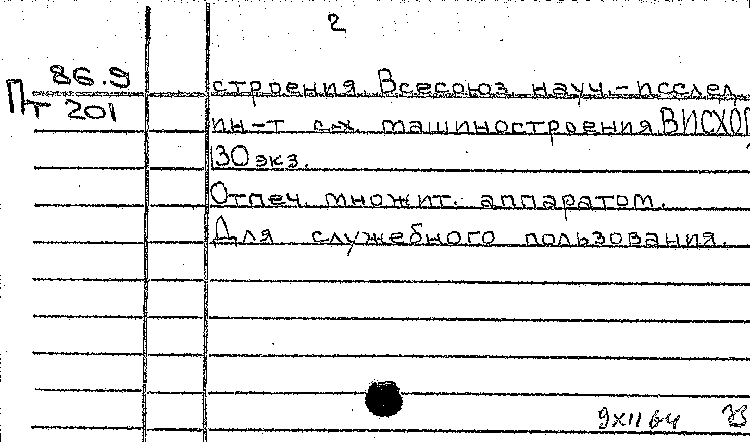 2
86.9
Пт 201
строения. Всесоюз. науч.-исслед.
ин-т с.-х. машиностроения ВИСХОМ
130 экз.
Отпеч. множит. аппаратом.
Для служебного пользования.
9XII 64